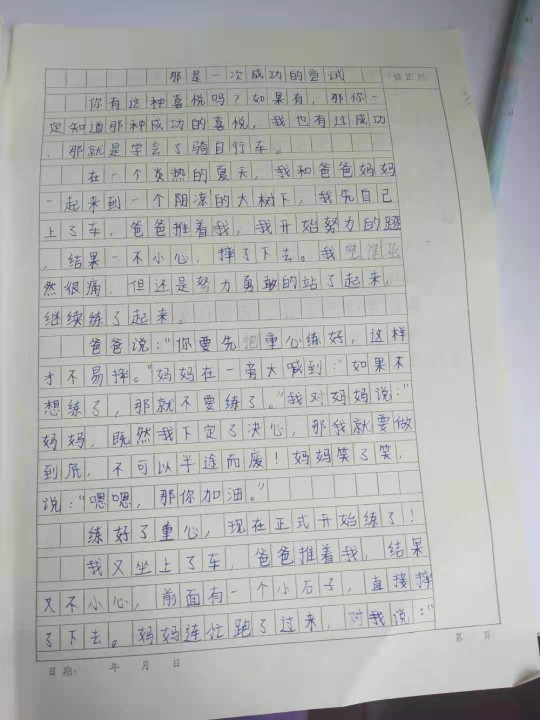 那是一次成功的尝试
修正栏
你有这种喜悦吗？如果有，那你一
定知道那种成功的喜悦，我也有过成功
，那就是学会了骑自行车。
在一个炎热的夏天，我和爸爸妈妈
一起来到一个阴凉的大树下，我先自己
上了车，爸爸推着我，我开始努力的蹬
，结果一不小心，摔了下去。我
然很痛，但还是努力勇敢的站了起来，
继续练了起来。
爸爸说："你要先把重心练好，这样
才不易摔。"妈妈在一旁大喊到："如果不
想练了，那就不要练了。"我对妈妈说："
妈妈，既然我下定了决心，那我就要做
到底，不可以半途而废！妈妈笑了笑，
说："嗯嗯，那你加油。"
练好了重心，现在正式开始练了！
我又坐上了车，爸爸推着我，结果
又不小心，前面有一个小石子，直接摔
了下去。妈妈连忙跑了过来，对我说："
日期： 年 月 日
第 页